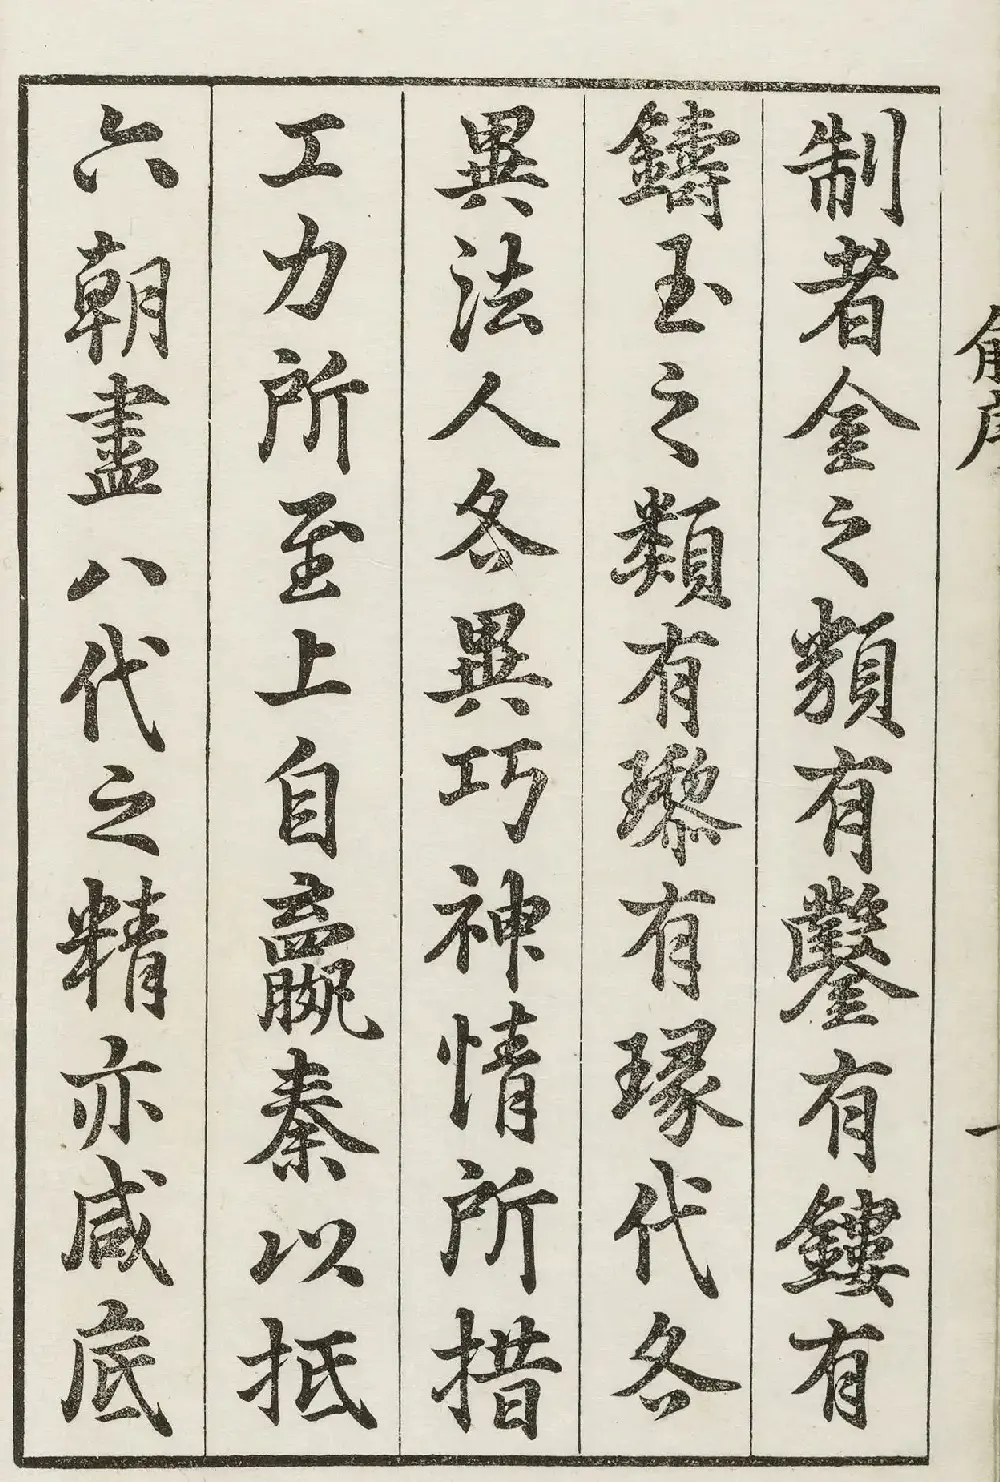 制者金之類有鑿有鏤有
鑄玉之類有瓈有瑑代各
異法人各異巧神情所措
工力所至上自嬴秦以抵
六朝盡八代之精亦咸底